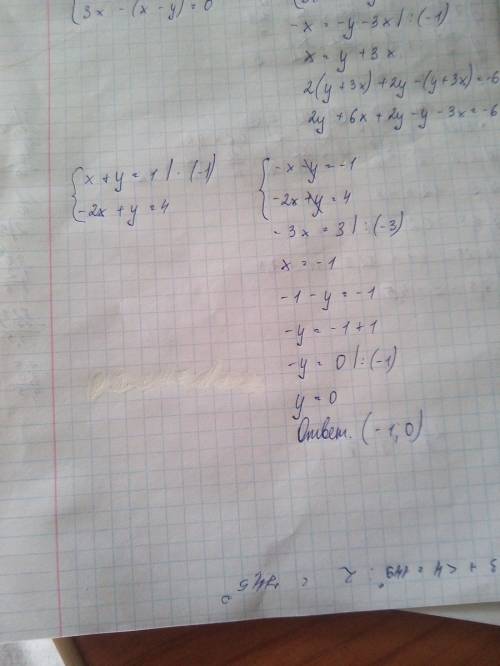 3x - (x - y) = 0
-x = -y - 3x | : (-1)
x = y + 3x
2(y + 3x) + 2y - (y + 3x) = -6
2y + 6x + 2y - y - 3x = -6
{ x + y = 1 | · (-1)
-2x + y = 4
{ -x - y = -1
-2x + y = 4
-3x = 3 | : (-3)
x = -1
-1 - y = -1
-y = -1 + 1
-y = 0 | : (-1)
y = 0
Ответ. (-1, 0)